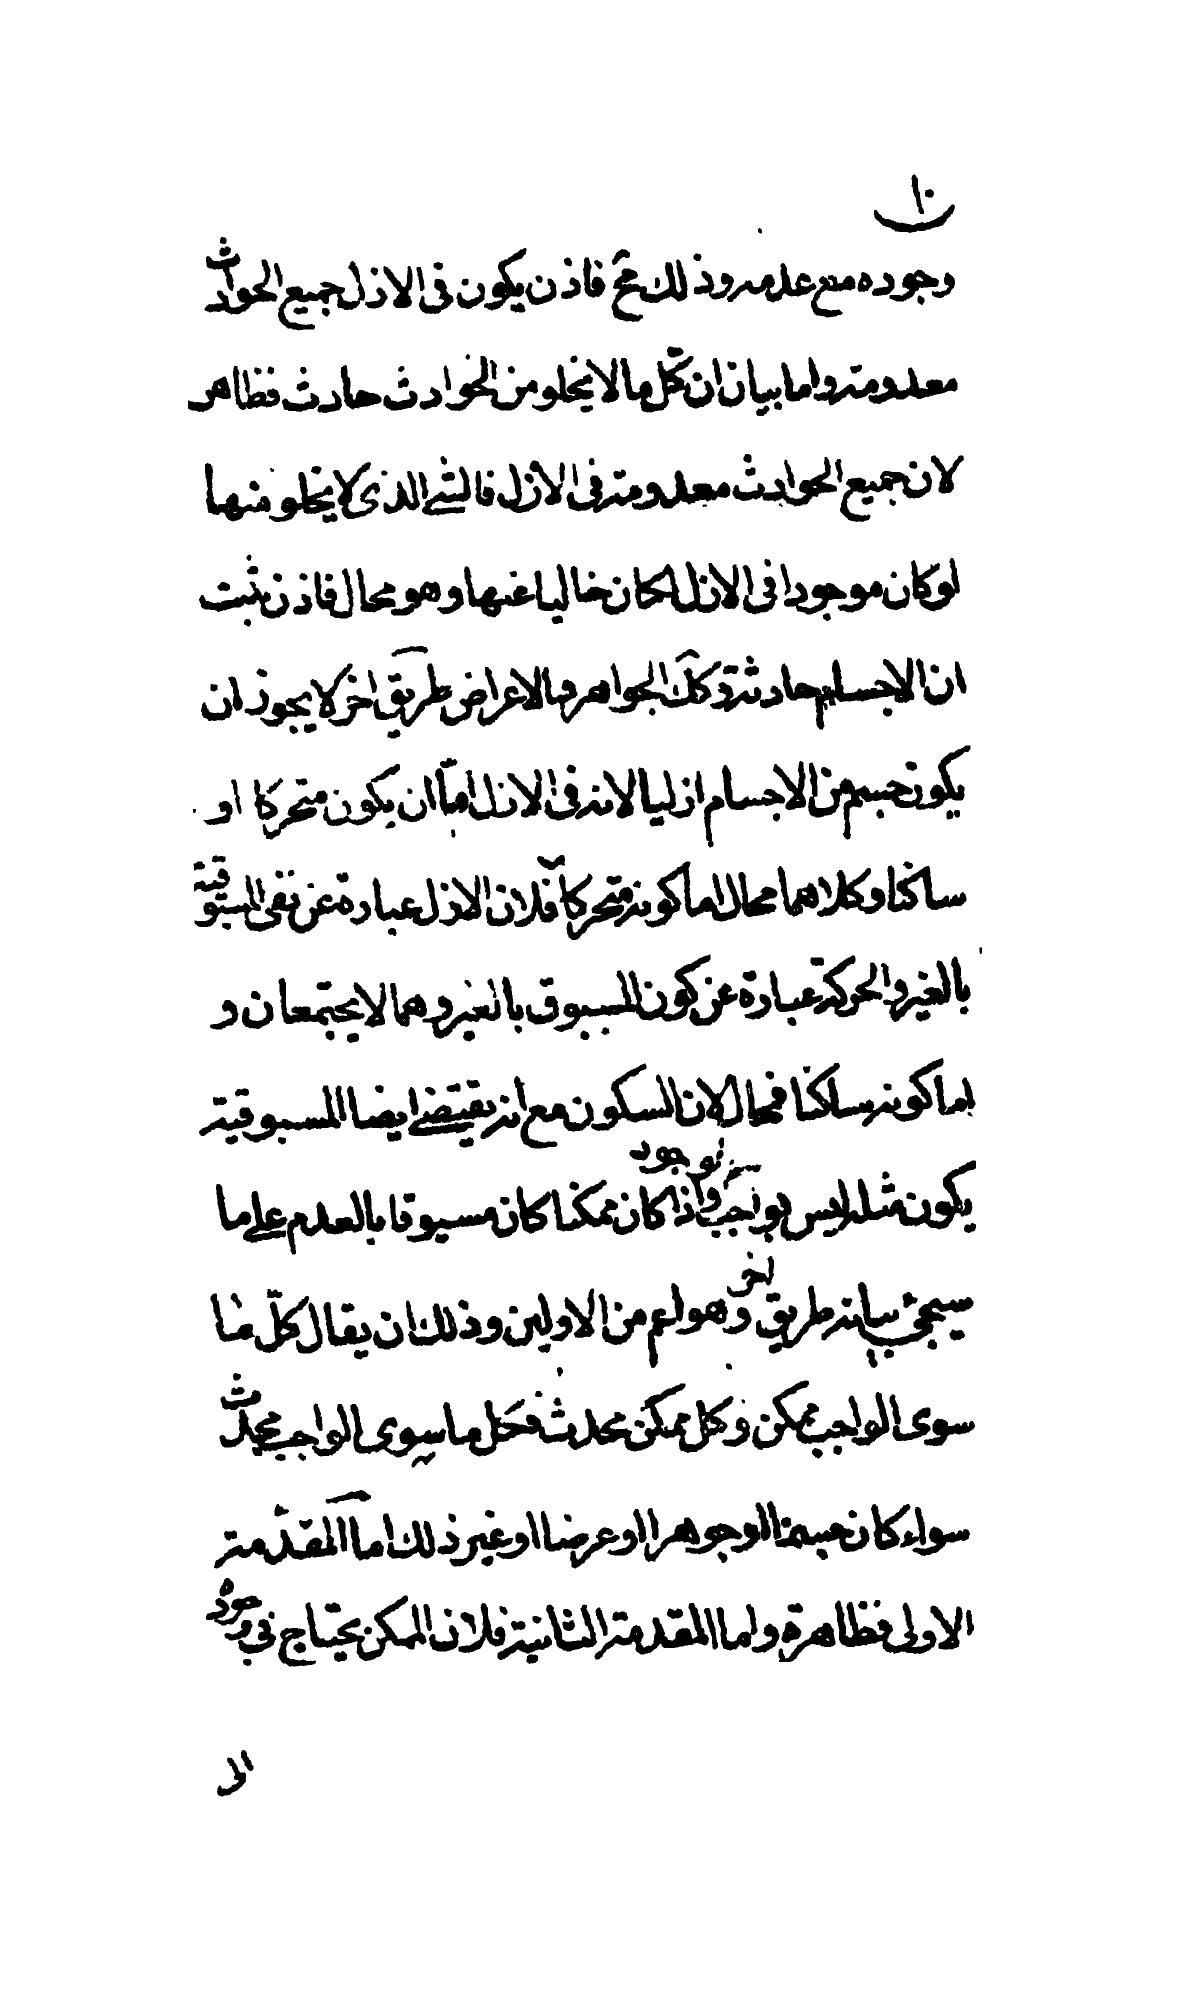 ١٠
وجوده مع عدمه وذلك مح فاذن يكون فى الازل جميع الحوادث
معدومة واما بيان ان كلّ ما لا يخلو من الحوادث حادث فظاهر
لان جميع الحوادث معدومة فى الازل فالشئ الذى لا يخلو منها
لو كان موجودا فى الازل لكان خاليا عنها وهو محال فاذن ثبت
ان الاجسام حادثة وكك الجواهر والاعراض طريق اخر لا يجوز ان
يكون جسم من الاجسام ازليا لانه فى الازل امّا ان يكون متحركا او
ساكنا وكلاهما محال اما كونه متحركا فلان الازل عبارة عن نفى المسبوقية
بالغير والحركة عبارة عن كون المسبوق بالغير وهما لا يجتمعان و
اما كونه ساكنا فمحال لان السكون مع انه يقتضى ايضا المسبوقية
يكون مثله ليس بواجب الوجود واذا كان ممكنا كان مسبوقا بالعدم على ما
سيجئ بيانه طريق اخر وهو اعم من الاولين وذلك ان يقال كلّ ما
سوى الواجب ممكن وكل ممكن محدث فكل ما سوى الواجب محدث
سواء كان جسما او جوهرا او عرضا او غير ذلك امّا المقدّمة
الاولى فظاهرة واما المقدمة الثانية فلان الممكن يحتاج فى وجوده
الى